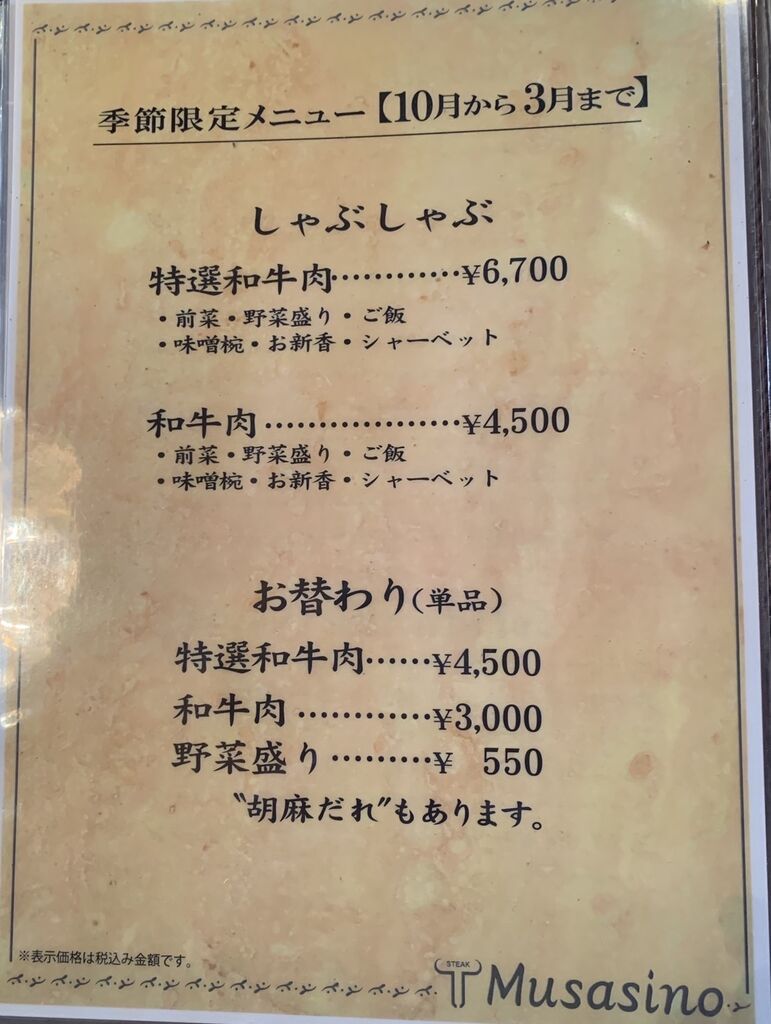 季節限定メニュー【10月から3月まで】
しゃぶしゃぶ
特選和牛肉…………¥6,700
・前菜・野菜盛り・ご飯
・味噌椀・お新香・シャーベット
和牛肉………………¥4,500
・前菜・野菜盛り・ご飯
・味噌椀・お新香・シャーベット
お替わり(単品)
特選和牛肉……¥4,500
和牛肉…………¥3,000
野菜盛り………¥ 550
〝胡麻だれ〟もあります。
※表示価格は税込み金額です。
STEAK
Musasino